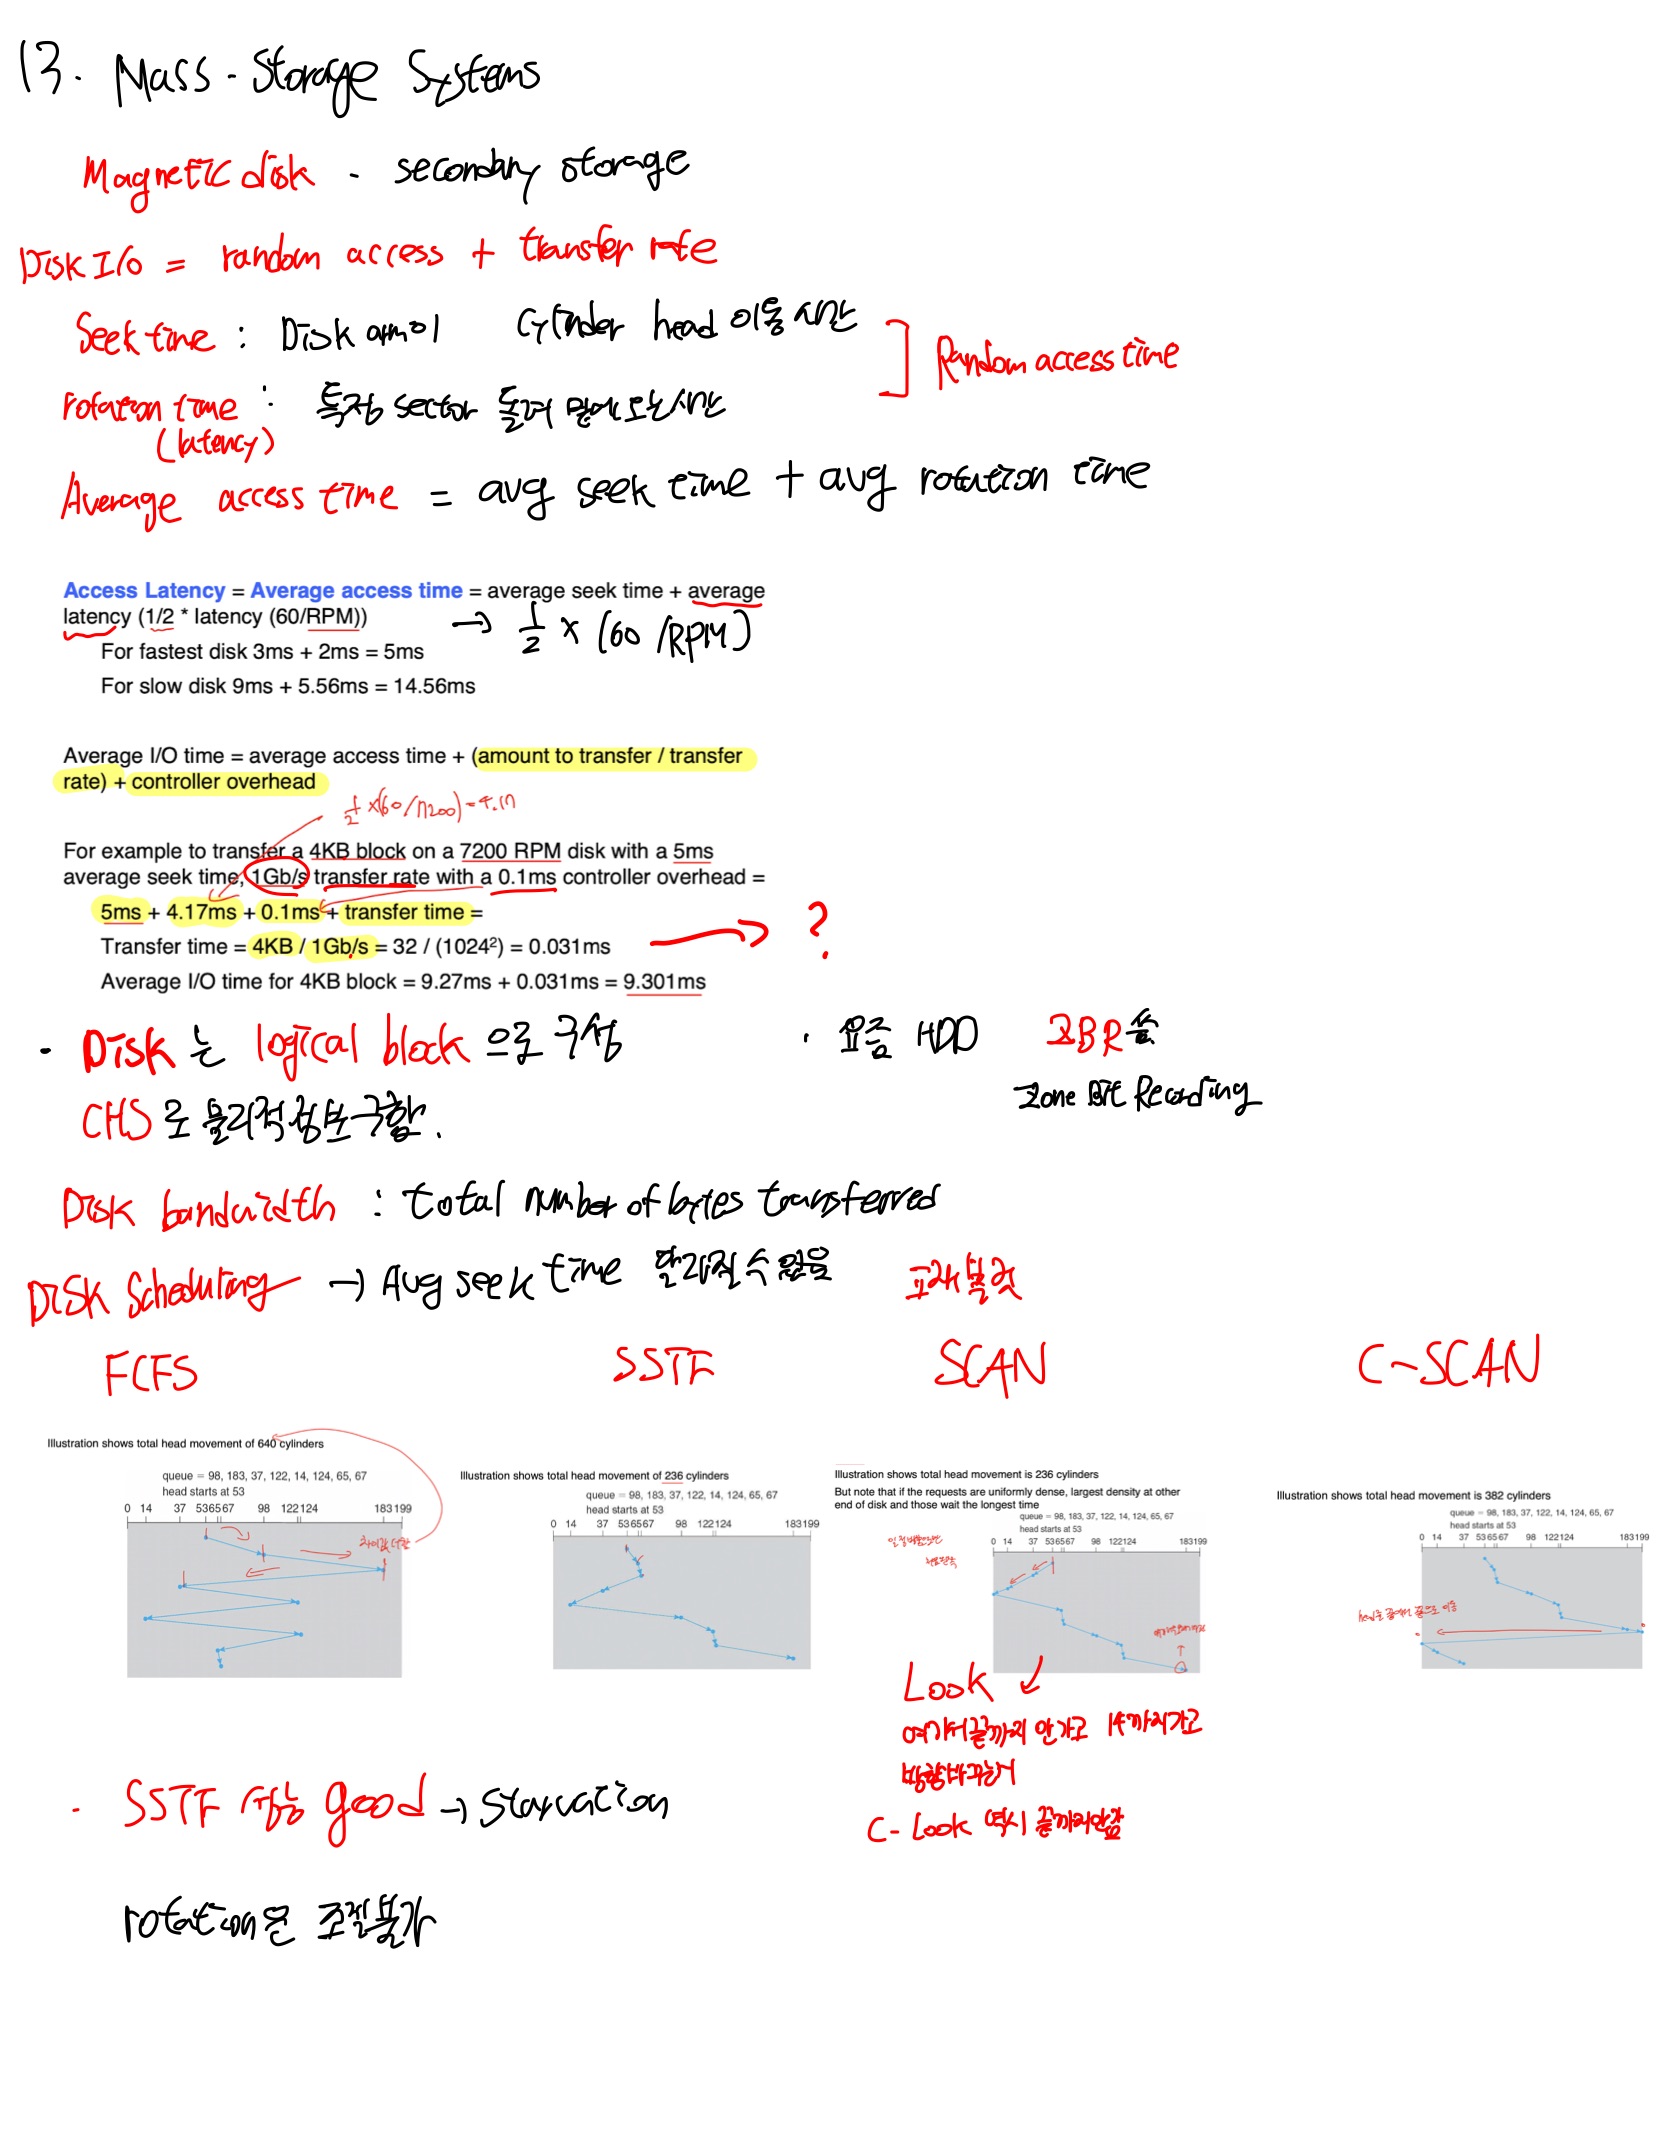 13. Mass-Storage Systems
Magnetic disk - secondary storage
Disk I/O = random access + transfer rate
Seek time : Disk arm이 Cylinder head 이동시간
Random access time
rotation time : 특정 sector 돌려 밑에 오는시간
(latency)
Average access time = avg seek time + avg rotation time
Access Latency = Average access time = average seek time + average
latency (1/2 * latency (60/RPM))
→ 1/2 x (60 /RPM)
For fastest disk 3ms + 2ms = 5ms
For slow disk 9ms + 5.56ms = 14.56ms
Average I/O time = average access time + (amount to transfer / transfer
rate) + controller overhead
1/2 x(60/7200)=4.17
For example to transfer a 4KB block on a 7200 RPM disk with a 5ms
average seek time, 1Gb/s transfer rate with a 0.1ms controller overhead =
5ms + 4.17ms + 0.1ms + transfer time =
Transfer time = 4KB / 1Gb/s = 32 / (1024²) = 0.031ms
→ ?
Average I/O time for 4KB block = 9.27ms + 0.031ms = 9.301ms
· Disk 는 logical block 으로 구성
· 요즘 HDD ZBR씀
Zone Bit Recording
CHS로 물리적정보구함.
Disk bandwidth : total number of bytes transferred
Disk Scheduling → Avg seek time 달라질수있음
교재볼것
FCFS
SSTF
SCAN
C-SCAN
Illustration shows total head movement of 640 cylinders
queue = 98, 183, 37, 122, 14, 124, 65, 67
head starts at 53
0 14 37 536567 98 122124 183199
차이값 더함
Illustration shows total head movement of 236 cylinders
queue = 98, 183, 37, 122, 14, 124, 65, 67
head starts at 53
0 14 37 536567 98 122124 183199
Illustration shows total head movement is 236 cylinders
But note that if the requests are uniformly dense, largest density at other
end of disk and those wait the longest time
queue = 98, 183, 37, 122, 14, 124, 65, 67
head starts at 53
0 14 37 536567 98 122124 183199
Illustration shows total head movement is 382 cylinders
queue = 98, 183, 37, 122, 14, 124, 65, 67
head starts at 53
0 14 37 536567 98 122124 183199
head를 끝에서 끝으로 이동
Look
여기서끝까지 안가고 14까지가고
방향바꾸는거
C-Look 역시 끝까지안감
· SSTF 성능 good → Starvation
rotation은 조절불가